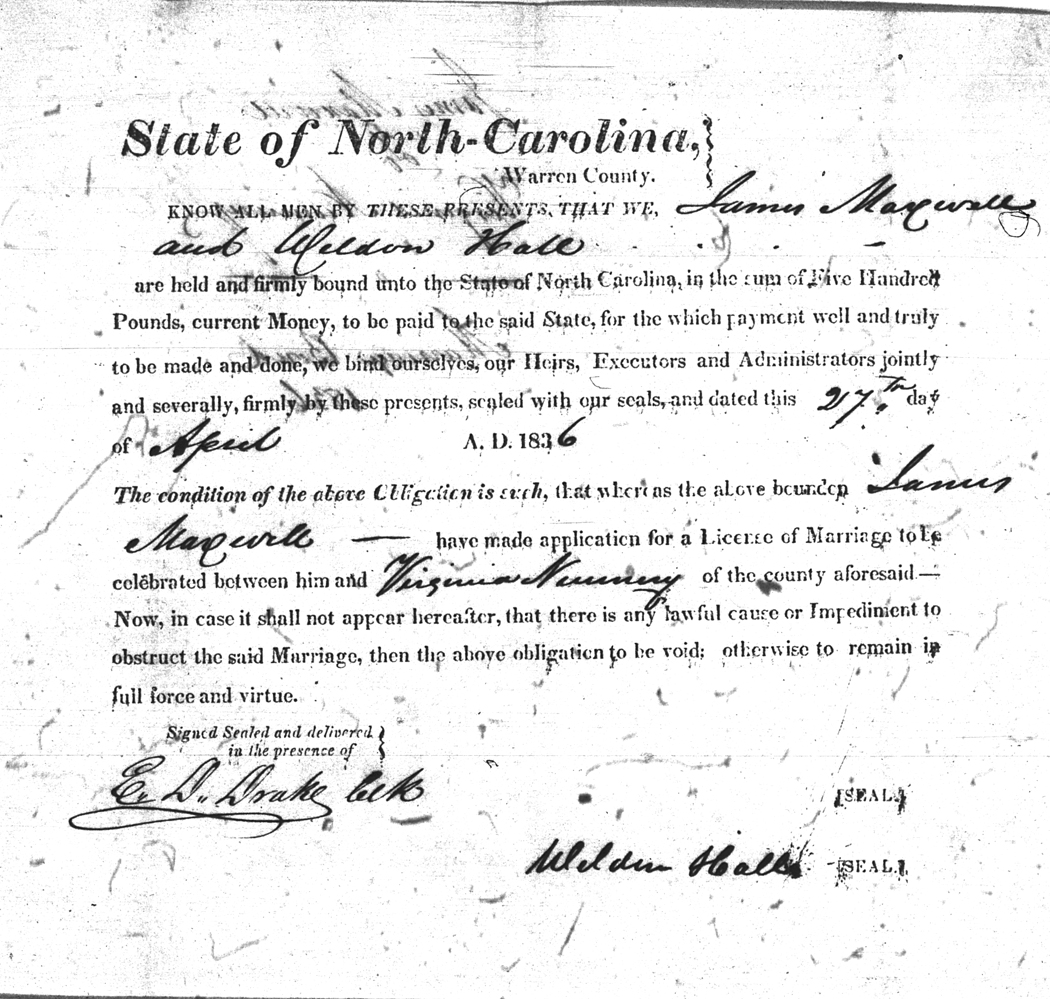 State of North-Carolina,
Warren County.
KNOW ALL MEN BY THESE PRESENTS, THAT WE, James Maxwell
and Weldon Hall
are held and firmly bound unto the State of North Carolina, in the sum of Five Hundred
Pounds, current Money, to be paid to the said State, for the which payment well and truly
to be made and done, we bind ourselves, our Heirs, Executors and Administrators jointly
and severally, firmly by these presents, sealed with our seals, and dated this 27.th day
of April A. D. 1836
The condition of the above Obligation is such, that whereas the above bounden James
Maxwell — have made application for a License of Marriage to be
celebrated between him and Virginia Nunnery of the county aforesaid.—
Now, in case it shall not appear hereafter, that there is any lawful cause or Impediment to
obstruct the said Marriage, then the above obligation to be void; otherwise to remain in
full force and virtue.
Signed Sealed and delivered
in the presence of
E. D. Drake Clk
[SEAL.]
Weldon Hall [SEAL.]